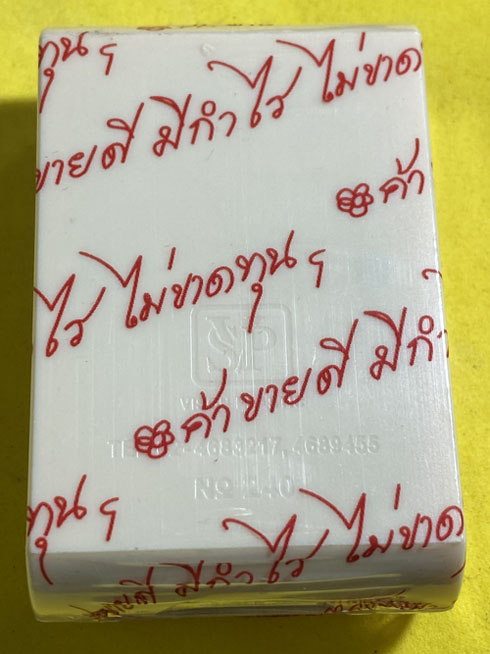 ทุน ๆ
ขายดี มีกำไร ไม่ขาด
ค้า
ไร ไม่ขาดทุน ๆ
ค้าขายดี มีกำ
VSP
4689455
ทุน ๆ
ไร ไม่ขาด
ขายดี มีกำไร